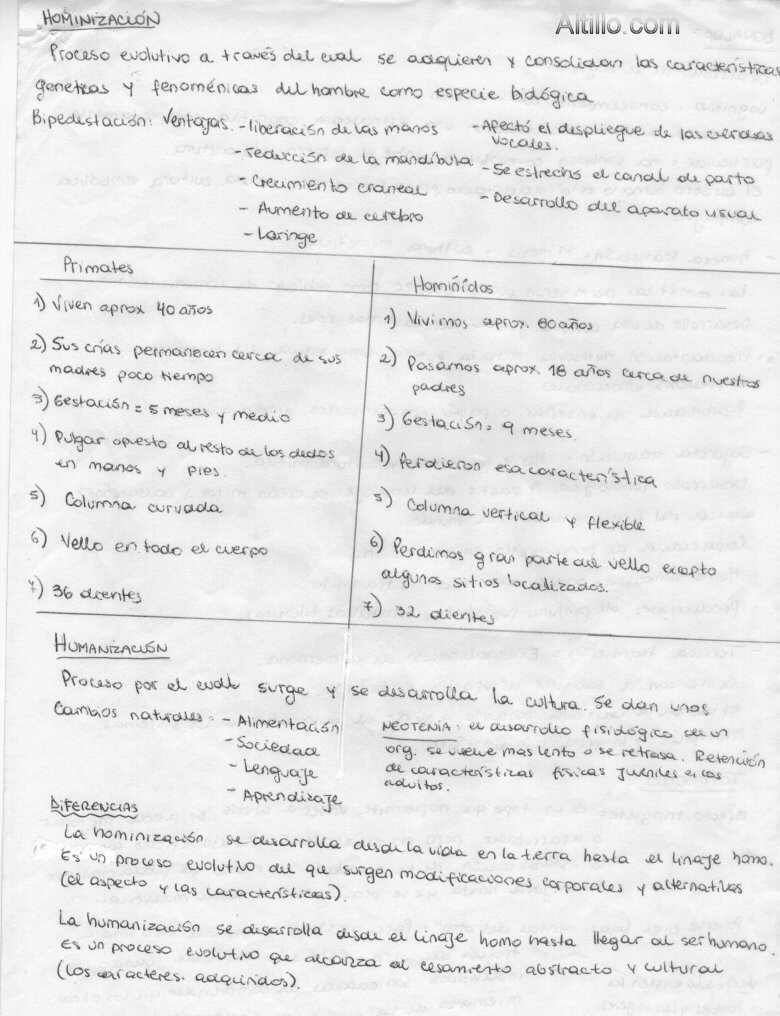 HOMINIZACIÓN
Altillo.com
Proceso evolutivo a través del cual se adquieren y consolidan las características
genéticas y fenoménicas del hombre como especie biológica
Bipedestación: Ventajas. - liberación de las manos
- reducción de la mandíbula
- Crecimiento craneal
- Aumento de cerebro
- Laringe
- Afectó el despliegue de las cuerdas
vocales.
- Se estrechó el canal de parto
- Desarrollo del aparato visual
Primates
1) Viven aprox 40 años
2) Sus crías permanecen cerca de sus
madres poco tiempo
3) Gestación = 5 meses y medio
4) Pulgar opuesto al resto de los dedos
en manos y pies.
5) Columna curvada
6) Vello en todo el cuerpo
7) 36 dientes
Homínidos
1) Vivimos aprox. 80 años
2) Pasamos aprox. 18 años cerca de nuestros
padres
3) Gestación = 9 meses.
4) Perdieron esa característica
5) Columna vertical y flexible
6) Perdimos gran parte del vello excepto
algunos sitios localizados.
7) 32 dientes
HUMANIZACIÓN
Proceso por el cual surge y se desarrolla la cultura. Se dan unos
Cambios naturales: - Alimentación
- Sociedad
- Lenguaje
- Aprendizaje
NEOTENIA: el desarrollo fisiológico de un
org. se vuelve mas lento o se retrasa. Retención
de características físicas juveniles en los
adultos.
DIFERENCIAS
La hominización se desarrolla desde la vida en la tierra hasta el linaje homo.
Es un proceso evolutivo del que surgen modificaciones corporales y alternativas
(el aspecto y las características).
La humanización se desarrolla desde el linaje homo hasta llegar al ser humano.
Es un proceso evolutivo que alcanza al abstracto y cultural
(los caracteres adquiridos).